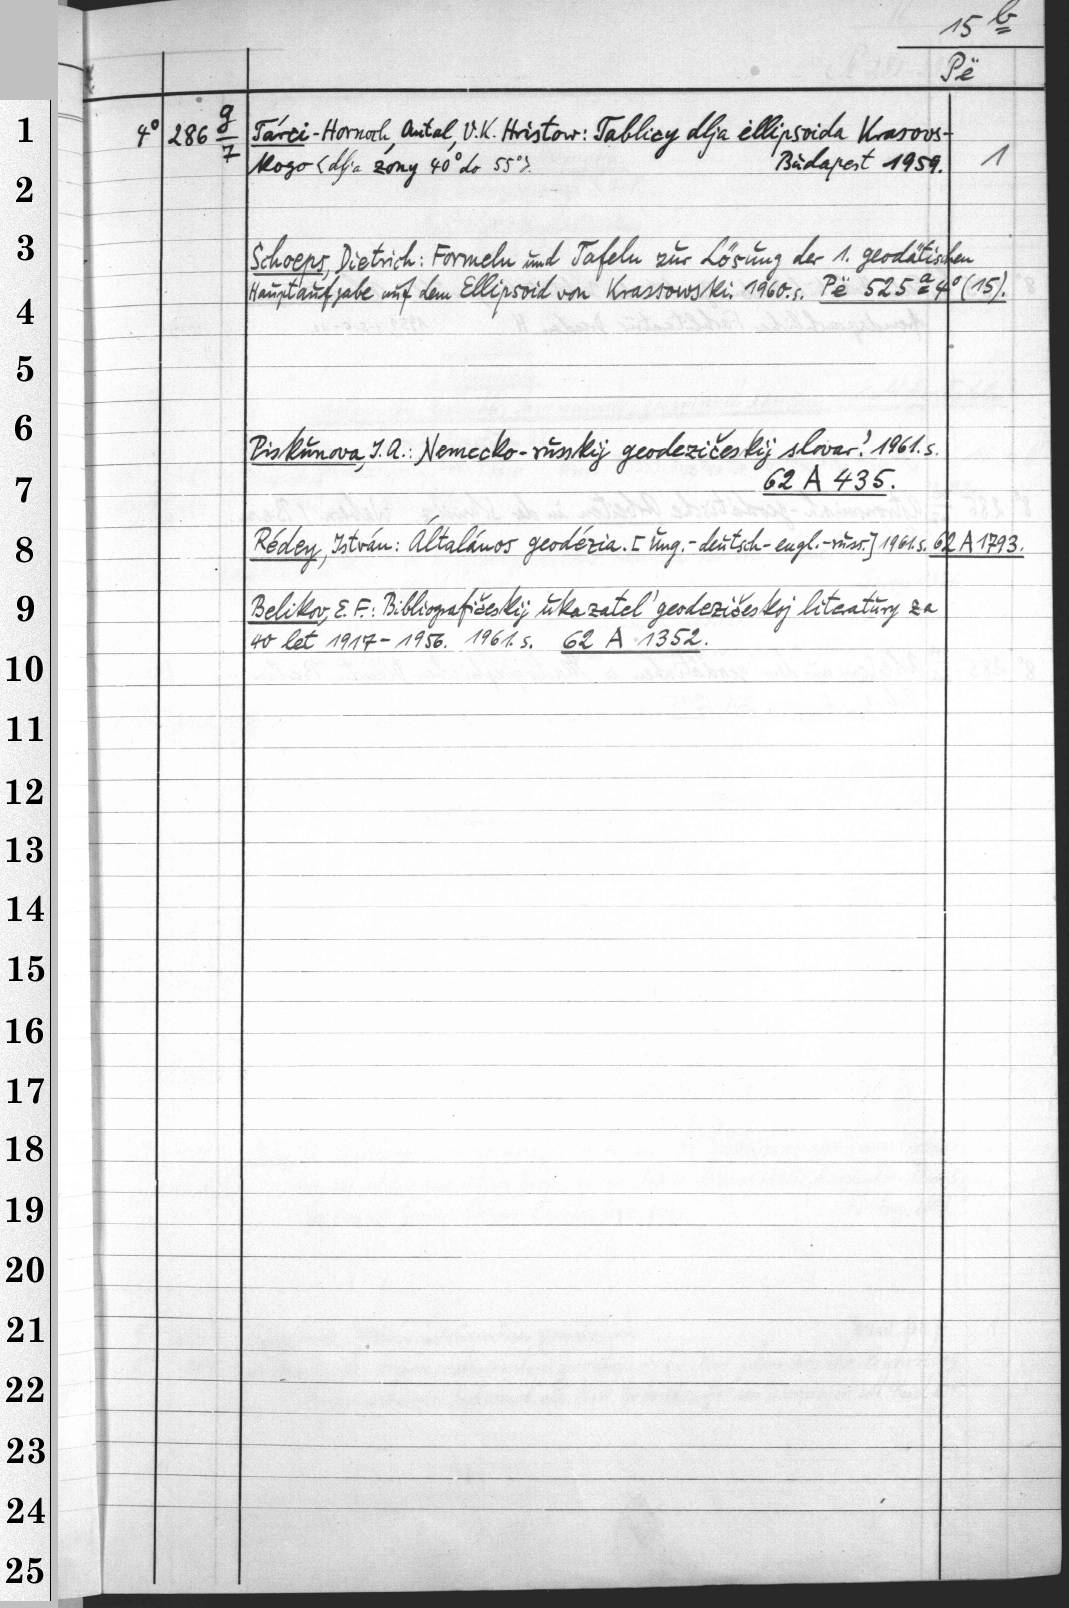 15 b
Pë
1
4° 286 g/7 Tárci-Hornoch, Antal, V.K. Hristow: Tablicy dlja ėllipsoida Krasovs-
skogo <dlja zony 40° do 55°>. Budapest 1959. 1
2
3
Schoeps, Dietrich: Formeln und Tafeln zur Lösung der 1. geodätischen
Hauptaufgabe auf dem Ellipsoid von Krassowski. 1960. s. Pë 525 a 4° (15).
4
5
6
Piskunova, I.A.: Nemecko-russkij geodezičeskij slovar'. 1961. s.
62 A 435.
7
8
Rédey, István: Általános geodézia. [ung.-deutsch-engl.-russ.] 1961. s. 62 A 1793.
9
Belikov, E. F.: Bibliografičeskij ukazatel' geodezičeskoj literatury za
40 let 1917-1956. 1961. s. 62 A 1352.
10
11
12
13
14
15
16
17
18
19
20
21
22
23
24
25